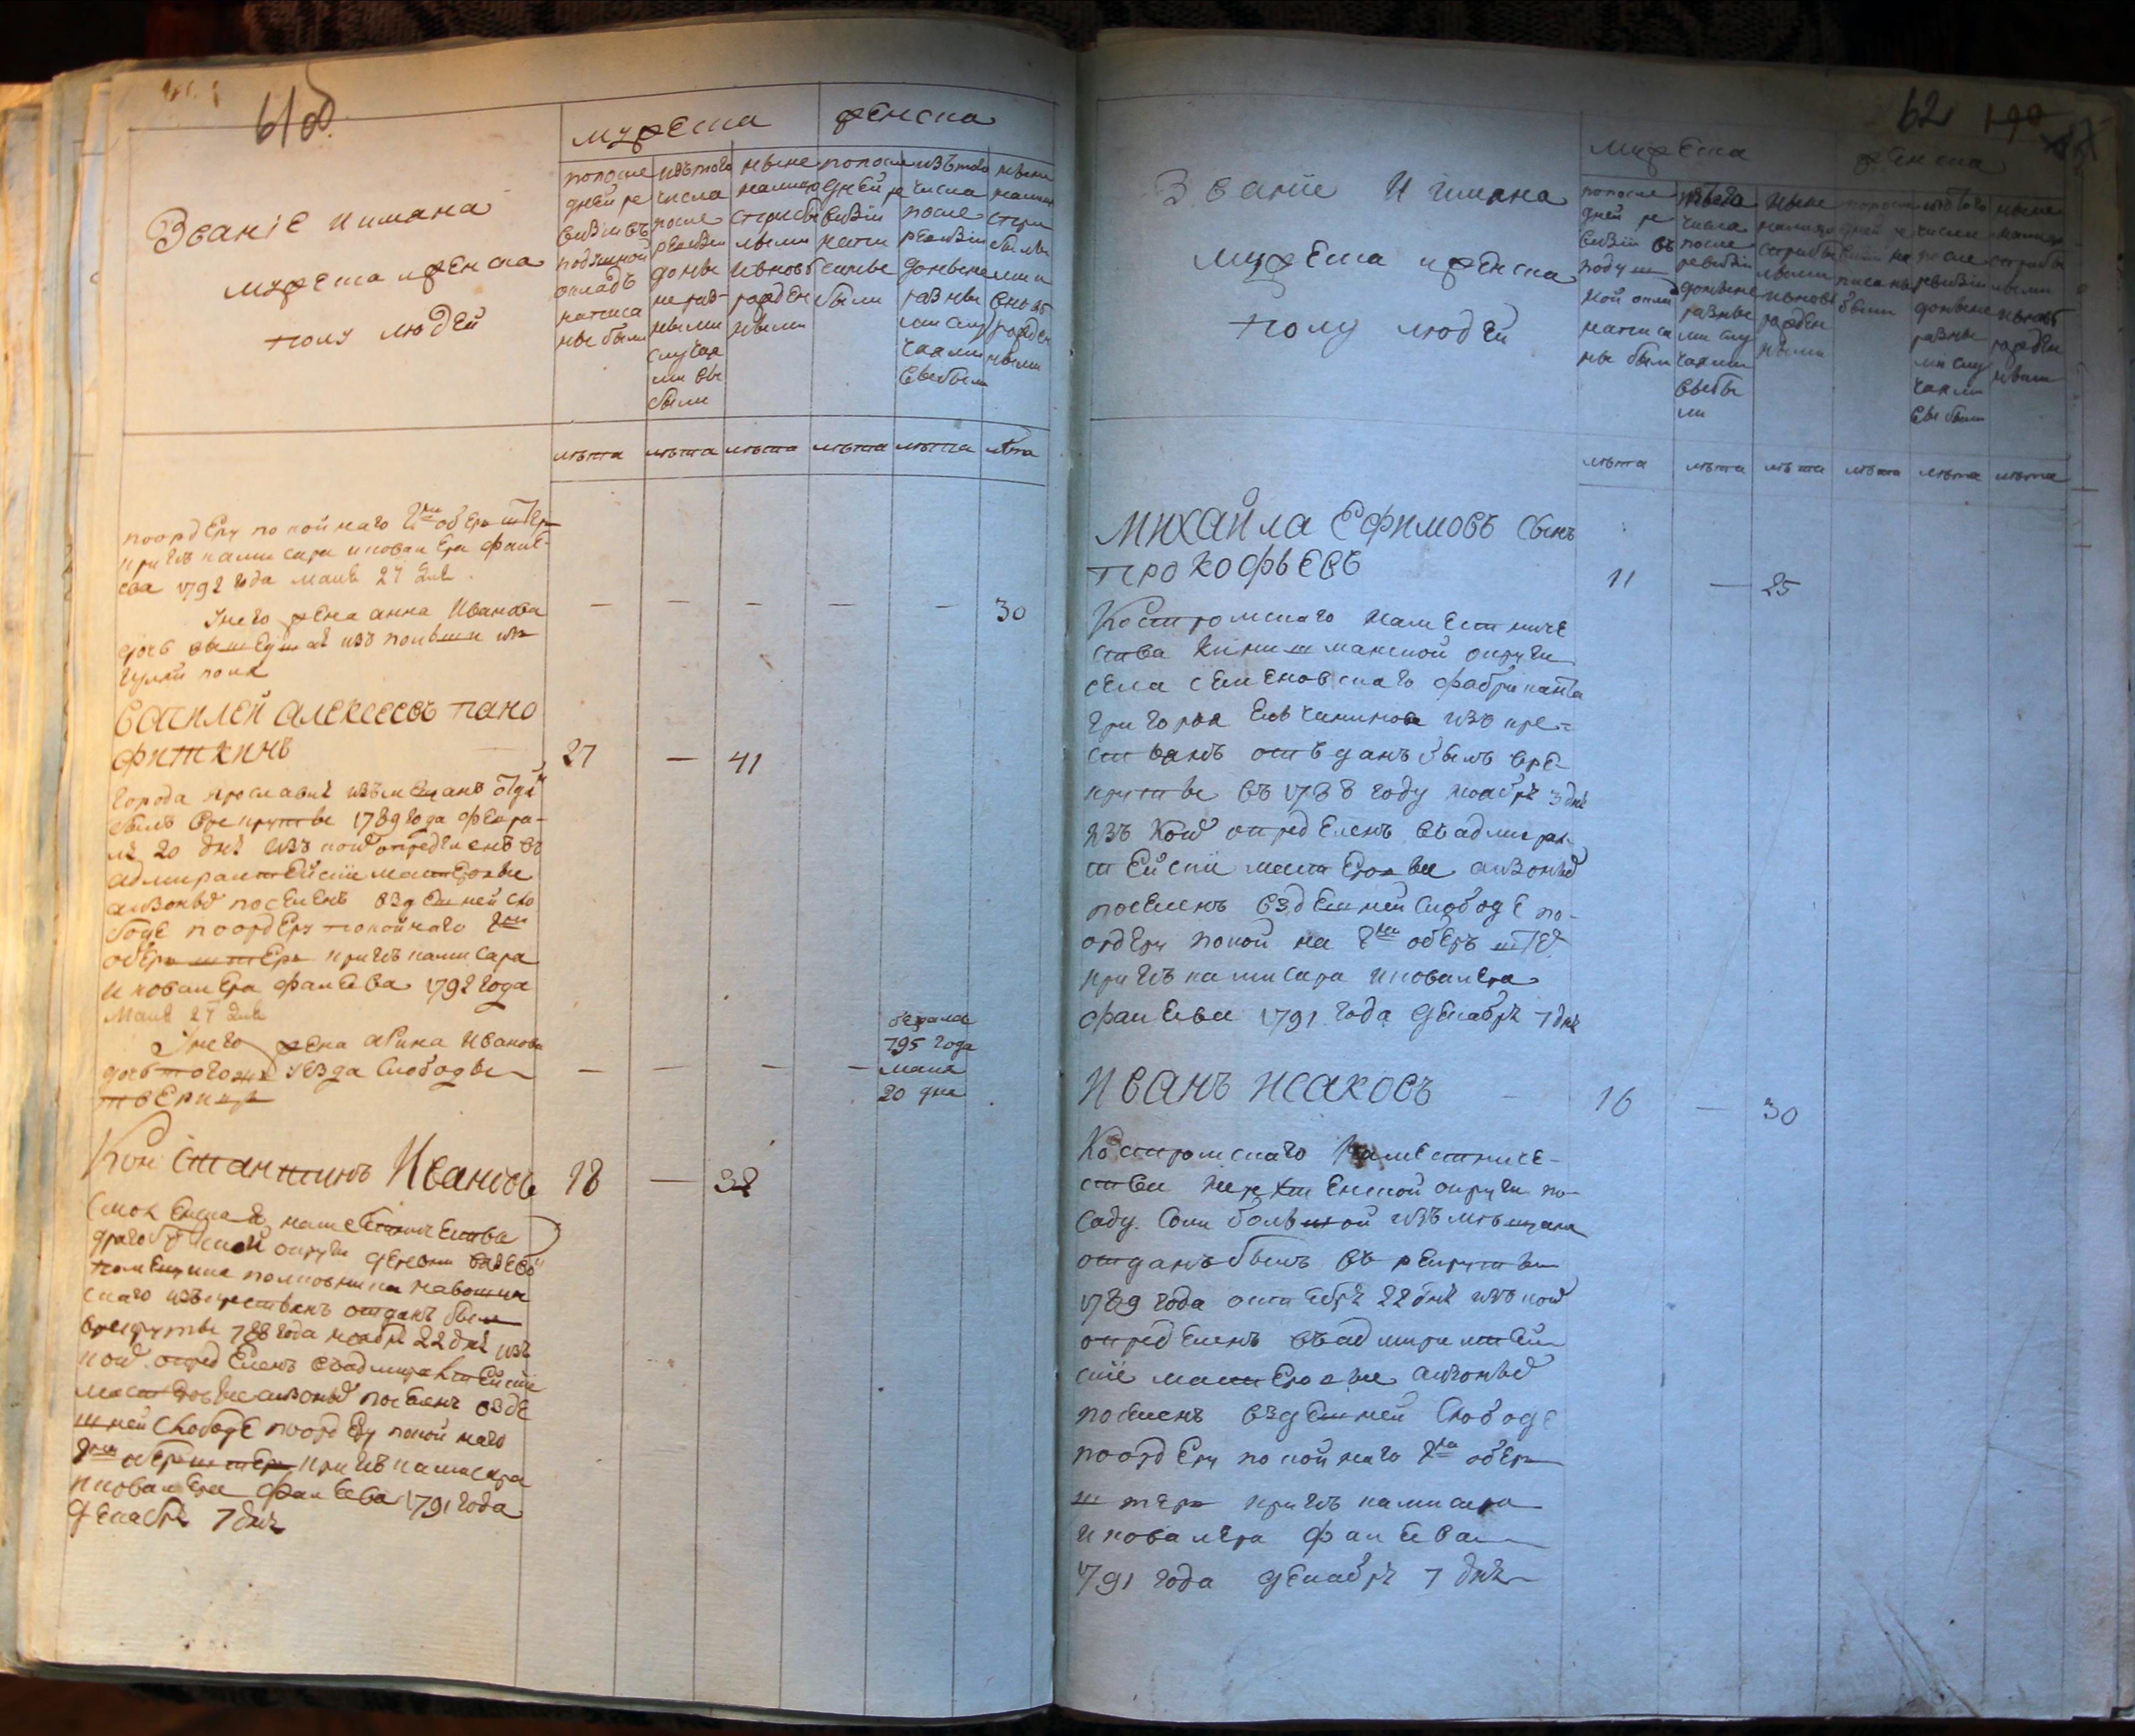 61об
Званіе и имяна
мужеска и женска
полу людей
мужеска
женска
по после
дней ре
визіи въ
подушной
окладъ
написа
ны были
изъ того
числа
после
ревизіи
до ны
не раз
ными
случая
ми вы
были
ныне
на лицо
старысь
лыми
и вновь
рожден
ными
по после
дней ре
визіи
напи
саны
были
изъ того
числа
после
ревизіи
до ныне
разны
ми слу
чаями
выбыли
ныне
на лицо
стары
были
ми и
вновь
рожден
ными
лѣта лѣта лѣта лѣта лѣта лѣта
по ордеру покойнаго гна оберъ штеръ
кригсъ камисара и ковалера фалѣ-
ева 1792 года маия 27 дня
У него жена анна Иванова — — — — — 30
дочь вышедшая изъ польши изъ
полка
Василей алексеевъ пано
фиткинъ 27 — 41
города ярославля изъ мещанъ отданъ
былъ в рекруты 1789 года февра-
ля 20 дня изъ коихъ определенъ въ
адмиралтейскіе мастеровые
а изоныхъ поселенъ в здешней сло
боде по ордеру покойнаго гна
оберъ штеръ кригсъ камисара
и ковалера фалеева 1792 года
маия 27 дня
У него жена арина Иванова
дочь того ж уезда слободы — — — —
бежала
795 года
маия
20 дня
Констанътинъ Ивановъ 18 — 32
Смоленскаго наместничества
драгобужской округи деревни
помещика полковника
скаго изъ крестьянъ отданъ былъ
в рекруты 788 года ноября 22 дня изъ
коихъ определенъ въ адмиралтейскіе
мастеровые а изоныхъ поселенъ в зде
шней слободе по ордеру покойнаго
гна оберъ штеръ кригсъ камисара
и ковалера фалеева 1791 года
декабря 7 дня
62 190
Званіе и имяна
мужеска и женска
полу людей
мужеска
женска
по после
дней ре
визіи въ
подуш
ной окла
написа
ны были
изъ того
числа
после
ревизіи
до ныне
разны
ми слу
чаями
выбы
ли
ныне
на лицо
старыбы
лыми
и вновь
рожден
ными
по после
дней ре
визіи на
писаны
были
изъ того
числа
после
ревизіи
до ныне
разны
ми слу
чаями
вы были
ныне
на лицо
старыбы
лыми
и вновь
рожден
ными
лѣта лѣта лѣта лѣта лѣта лѣта
Михайла Ефимовъ сынъ
прокофьевъ 11 — 25
Костромскаго наместниче
ства Кинишманской округи
села семеновскаго фабриканта
григорья изъ кре-
стьянъ отъданъ былъ в ре-
круты въ 1788 году ноября 3 дня
изъ коихъ определенъ въ адмирал-
тейскіе мастеровые а изоныхъ
поселенъ в здешней слободе по-
ордеру покой на гна оберъште
кригсъ камисара и ковалера
фалеева 1791 года декабря 7 дня
Иванъ Исаковъ 16 — 30
Костромскаго наместниче-
ства округи по-
саду соли большой изъ мѣщанъ
отданъ былъ въ рекруты
1789 года октября 22 дня изъ коихъ
определенъ въ адмиралтей
скіе мастеровые а изоныхъ
поселенъ в здешней слободе
по ордеру покойнаго гна оберъ
штеръ кригсъ камисара
и ковалера фалеева
1791 года декабря 7 дня